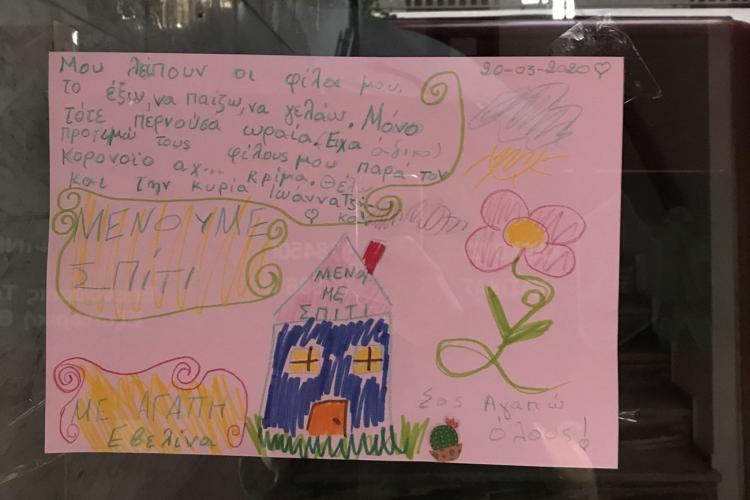 Μου λείπουν οι φίλοι μου.
το έξω, να παίζω, να γελάω. Μόνο
τότε περνούσα ωραία. (Είχα άδικο)
προτιμώ τους φίλους μου παρά τον
κορονοϊο αχ... κρίμα. Θέλω
και την κυρία Ιωάννα
και
20-03-2020
ΜΕΝΟΥΜΕ
ΣΠΙΤΙ
ΜΕΝΟΥ
ΜΕ
ΣΠΙΤΙ
ΜΕ ΑΓΑΠΗ
Εβελίνα
Σας Αγαπώ
όλους!